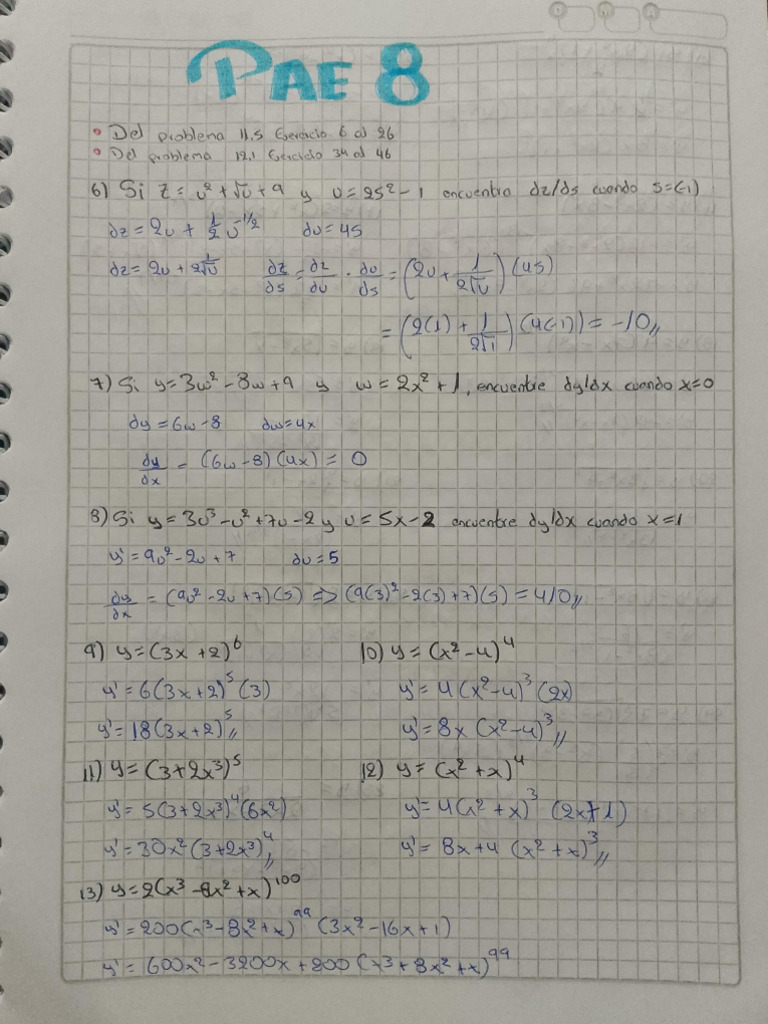 PAE 8
• Del problema 11.5 Ejercicio 6 al 26
• Del problema 12.1 Ejercicio 34 al 46
6) Si z = u² + √u + 9 y u = 2s² - 1 encuentra dz/ds cuando s=(-1)
dz = 2u + 1/2 u^-1/2 du = 4s
dz = 2u + 1/2√u dz/ds = dz/du · du/ds = (2u + 1/2√u)(4s)
= (2(1) + 1/2√1)(4(-1)) = -10//
7) Si y = 3w² - 8w + 9 y w = 2x² + 1, encuentre dy/dx cuando x=0
dy = 6w - 8 dw = 4x
dy/dx = (6w - 8)(4x) = 0
8) Si y = 3u³ - u² + 7u - 2 y u = 5x - 2 encuentre dy/dx cuando x = 1
y' = 9u² - 2u + 7 du = 5
dy/dx = (9u² - 2u + 7)(5) => (9(3)² - 2(3) + 7)(5) = 410//
9) y = (3x + 2)^6 10) y = (x² - 4)^4
y' = 6(3x + 2)^5 (3) y' = 4(x² - 4)^3 (2x)
y' = 18(3x + 2)^5// y' = 8x (x² - 4)^3//
11) y = (3 + 2x³)^5 12) y = (x² + x)^4
y' = 5(3 + 2x³)^4 (6x²) y' = 4(x² + x)^3 (2x + 1)
y' = 30x² (3 + 2x³)^4// y' = 8x + 4 (x² + x)^3//
13) y = 2(x³ - 8x² + x)^100
y' = 200(x³ - 8x² + x)^99 (3x² - 16x + 1)
y' = 600x² - 3200x + 200 (x³ + 8x² + x)^99